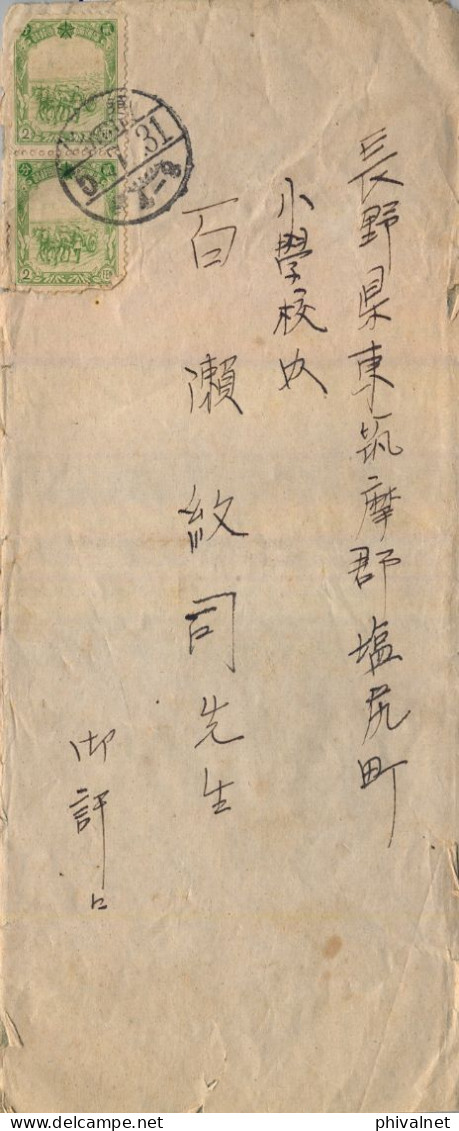 長野県東筑摩郡塩尻町
小學校内
百瀬紋司先生
御許に
5.7.31
2
2
phivalnet